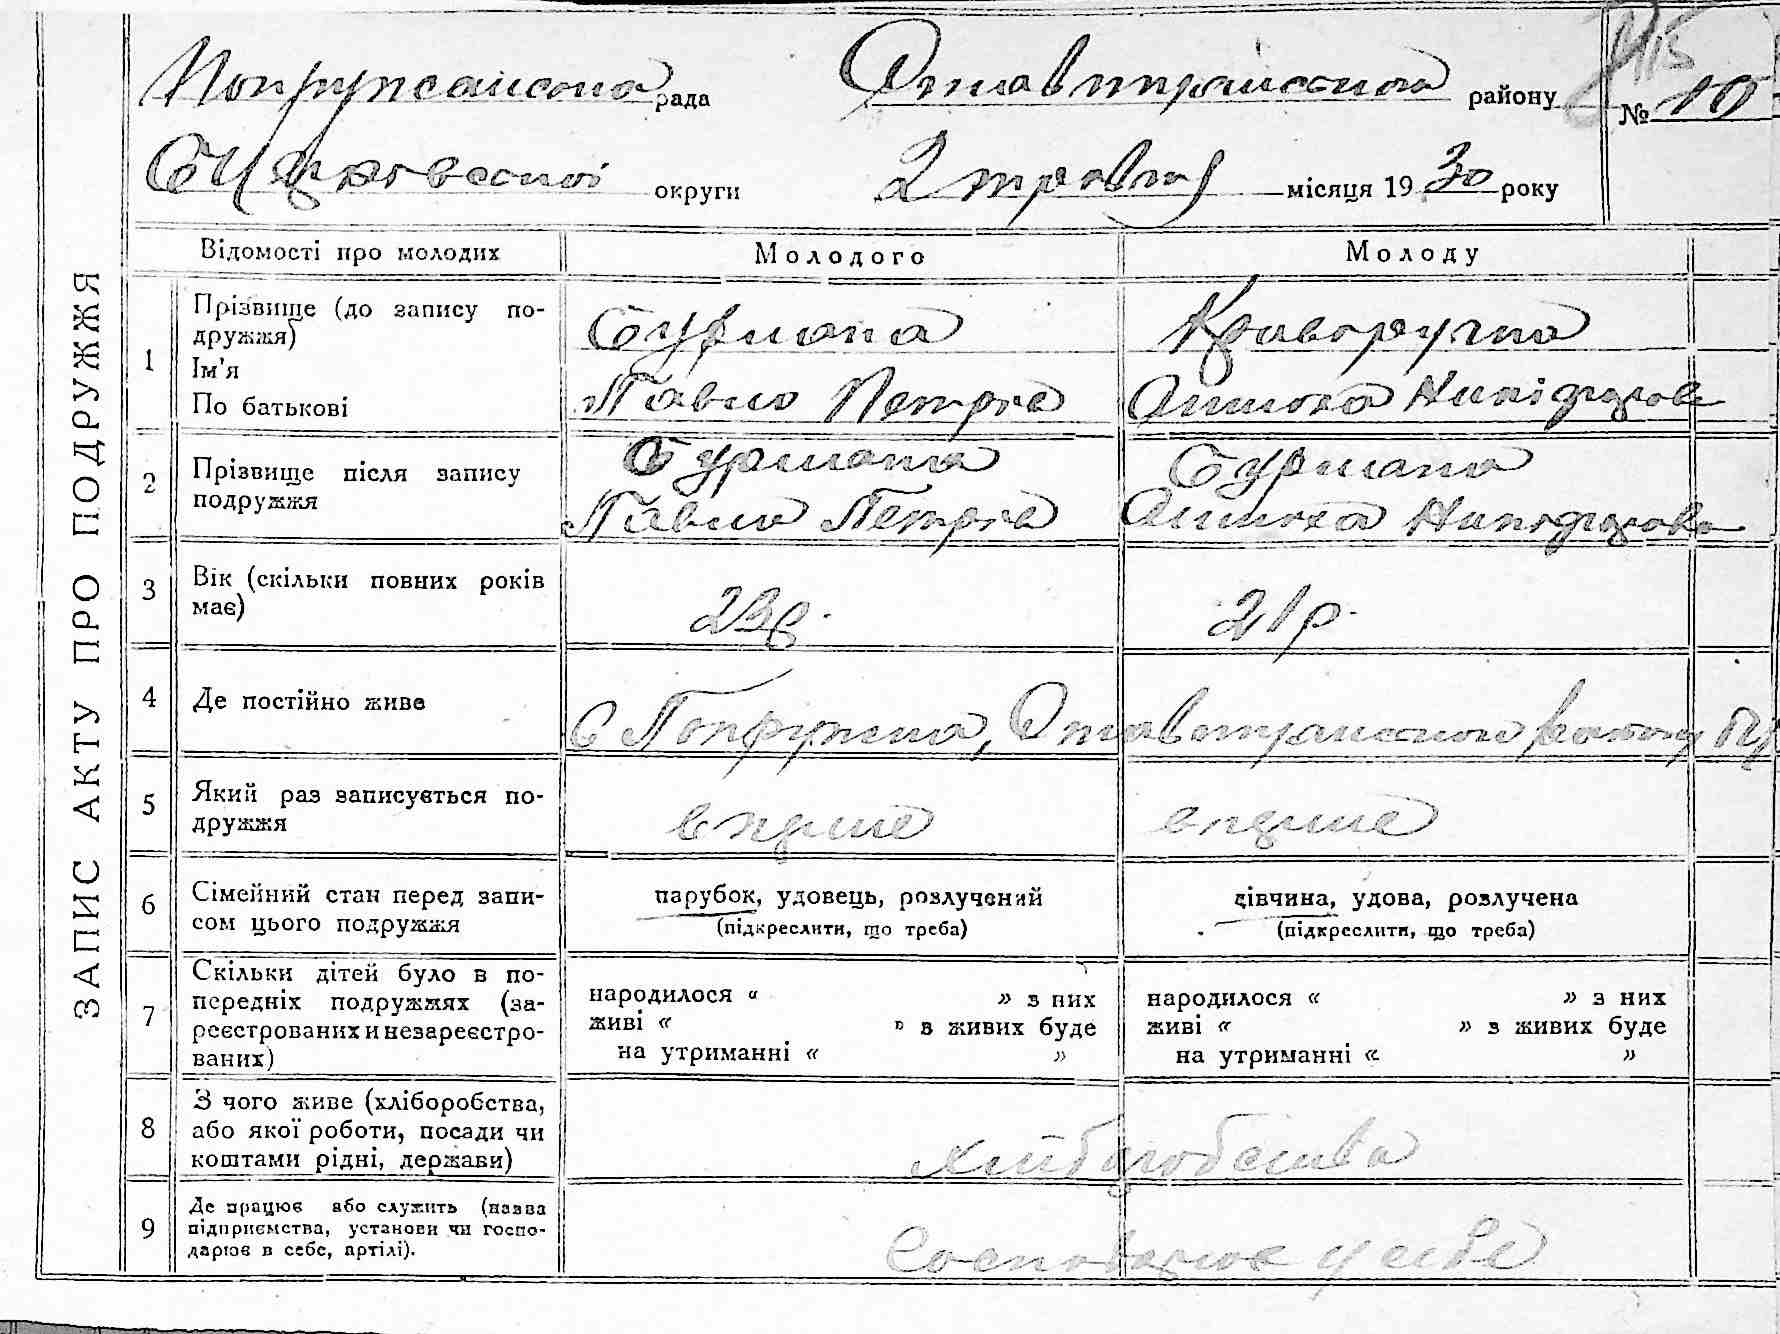 Попружанська рада Ставищанського району № 10
Білоцерковської округи 2 травня місяця 1930 року
ЗАПИС АКТУ ПРО ПОДРУЖЖЯ
Відомості про молодих Молодого Молоду
1 Прізвище (до запису по-
дружжя)
Ім'я
По батькові
Бурлака
Павло Петров
Криворучка
Никіфоров
2 Прізвище після запису
подружжя
Бурлака
Павло Петров
Бурлака
Никіфоров
3 Вік (скільки повних років
має)
23 р. 21 р.
4 Де постійно живе
с Попружна, Ставищанського району
5 Який раз записується по-
дружжя
вперше вперше
6 Сімейний стан перед запи-
сом цього подружжя
парубок, удовець, розлучений
(підкреслити, що треба)
дівчина, удова, розлучена
(підкреслити, що треба)
7 Скільки дітей було в по-
передніх подружжях (за-
реєстрованих и незареєстро-
ваних)
народилося « » з них
живі « » в живих буде
на утриманні « »
народилося « » з них
живі « » з живих буде
на утриманні « »
8 З чого живе (хліборобства,
або якої роботи, посади чи
коштами рідні, держави)
хліборобства
9 Де працює або служить (назва
підприємства, установи чи госпо-
дарює в себе, артілі).
Господарює у себе